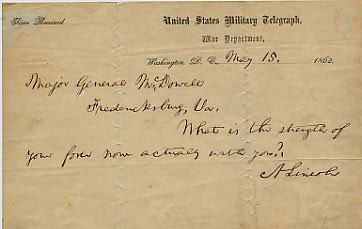 Time Received
United States Military Telegraph,
War Department,
Washington, D. C. May 15. 1862.
Major General McDowell
Fredericksburg, Va.
What is the strength of
your force now actually with you?
A Lincoln